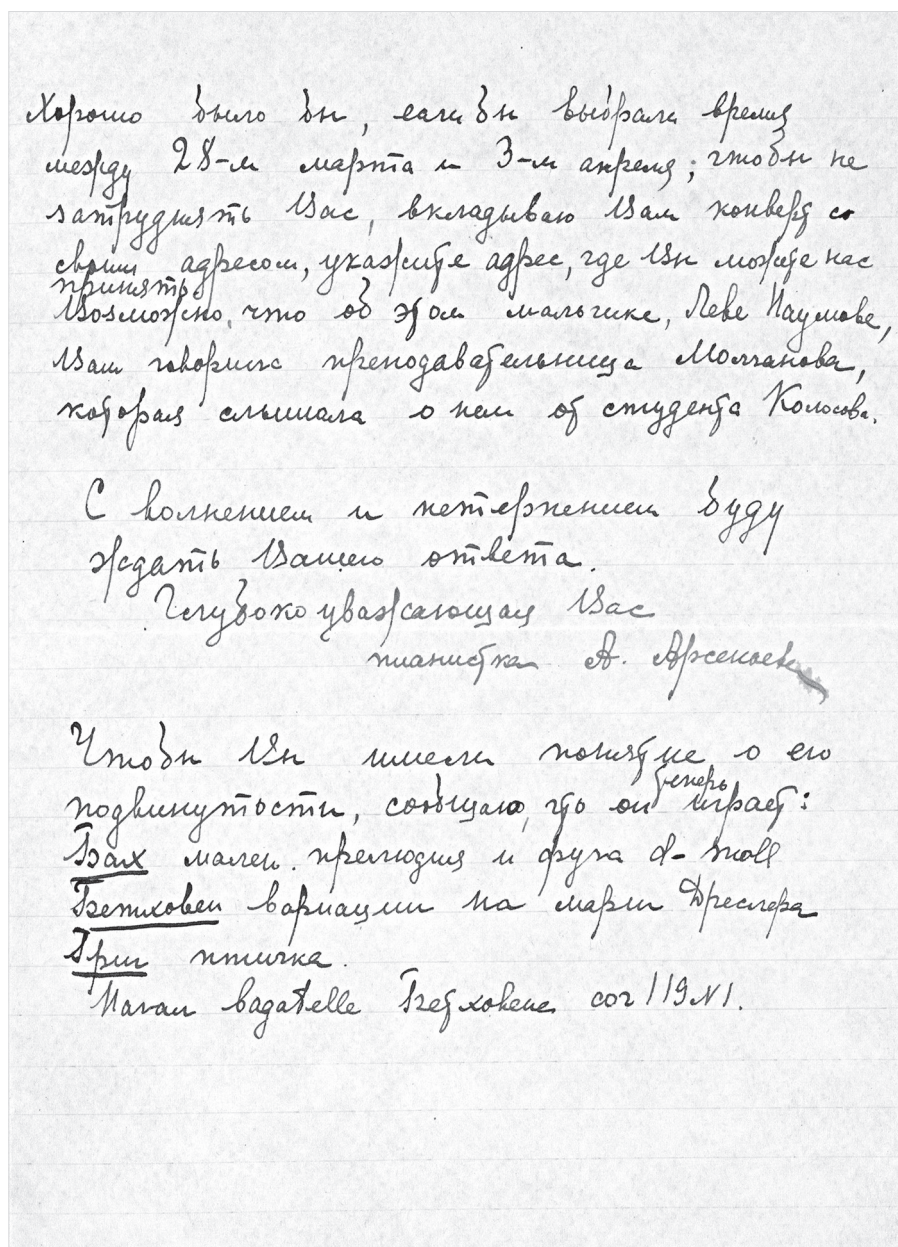 Хорошо было бы, если бы выбрали время
между 28-м марта и 3-м апреля; чтобы не
затруднять Вас, вкладываю Вам конверт со
своим адресом, укажите адрес, где Вы можете нас
принять.
Возможно, что об этом мальчике, Леве Наумове,
Вам говорила преподавательница Молчанова,
которая слышала о нем от студента Колосова.
С волнением и нетерпением буду
ждать Вашего ответа.
Глубоко уважающая Вас
пианистка А. Арсеньева
Чтобы Вы имели понятие о его
теперь
подвинутости, сообщаю, что он играет:
Бах мален. прелюдия и фуга d-moll
Бетховен вариации на марш Дреслера
Григ птичка.
Начал bagatelle Бетховена соч 119 N1.